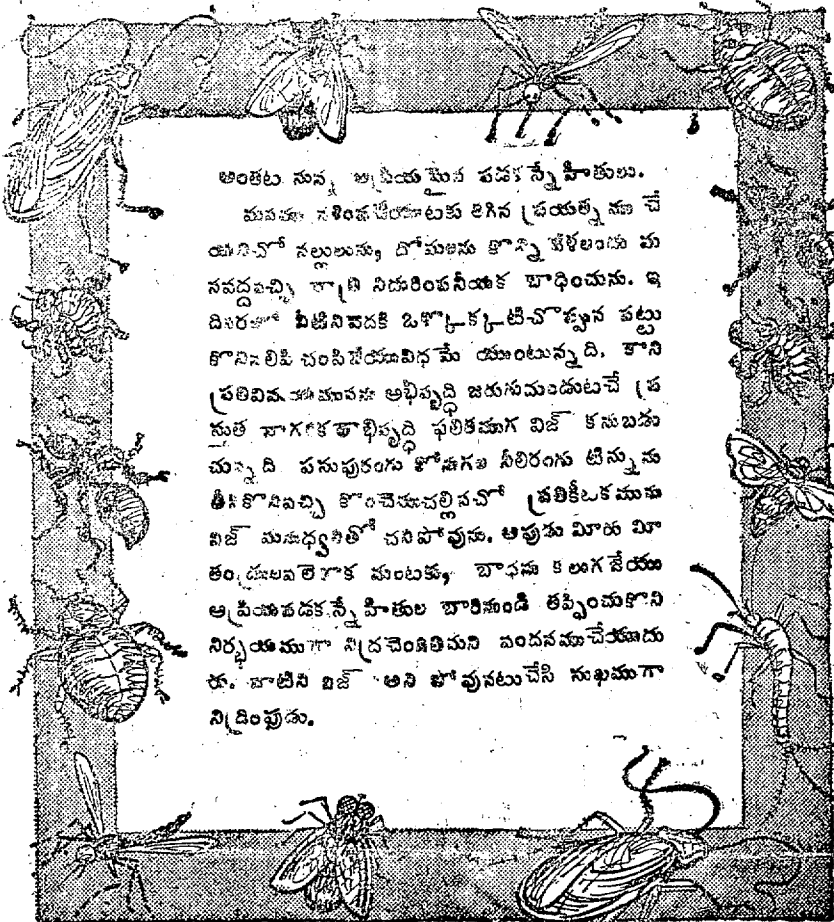 అంతట నున్న అప్రియమైన పడక స్నేహితులు.
నశింపజేయుటకు తగిన ప్రయత్నము చే
యనిచో నల్లులును, దోమలును కొన్ని వేళలందు మ
నవద్దవచ్చి రాత్రి నిదురింపనీయక బాధించును. ఇ
వీటినివెదకి ఒక్కొక్కటిచొప్పున పట్టు
కొనినలిపి చంపివేయువిధమే యుంటున్నది. కాని
అభివృద్ధి జరుగుచుండుటచే ప్ర
స్తుత నాగరికాభివృద్ధి ఫలితముగ విజ్ కనుబడు
చున్నది. పసుపురంగు నీలిరంగు టిన్నును
తీసికొనివచ్చి కొంచెముచల్లినచో ప్రతికీటకమును
విజ్ మనుధ్వనితో చనిపోవును. అపుడు మీరు మీ
తండ్రులవలెగాక మంటకు, బాధను కలుగజేయు
అప్రియపడకస్నేహితుల బారినుండి తప్పించుకొని
నిర్భయముగా నిద్రచెందితిమని వందనముచేయుదు
రు. వాటిని విజ్ అని పోవునటుచేసి సుఖముగా
నిద్రింపుడు.